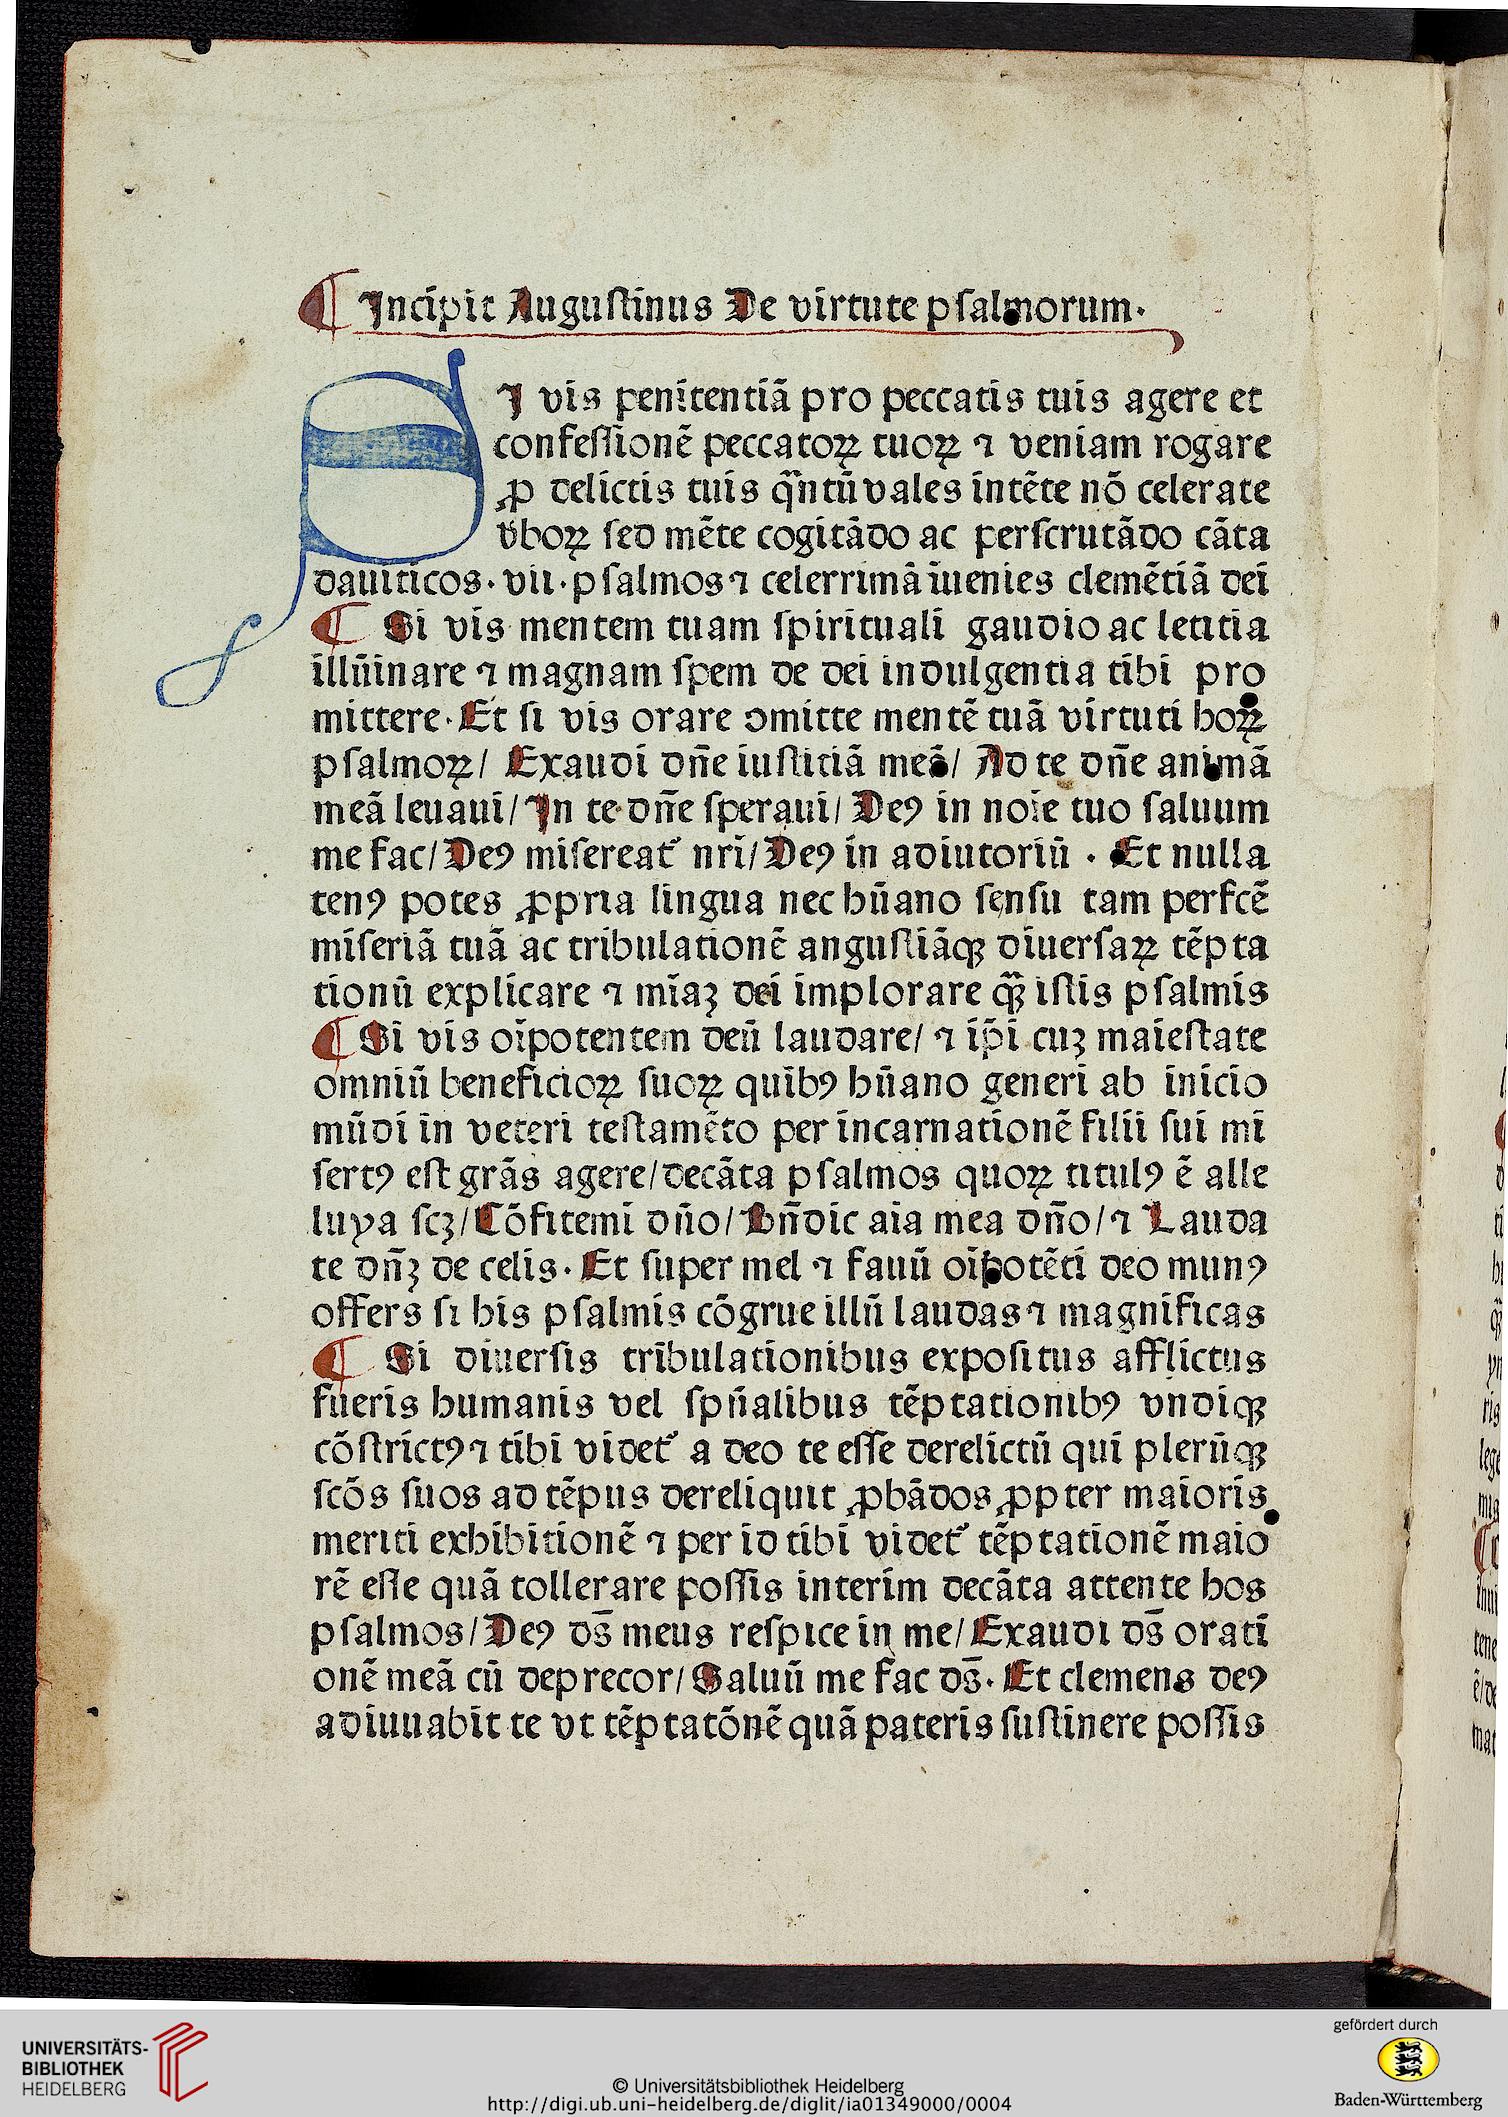 ¶ Incipit Auguſtinus De virtute pſalmorum.
SI vis penitentiā pro peccatis tuis agere et
confeſſionē peccatoꝝ tuoꝝ ⁊ veniam rogare
ꝓ delictis tuis q̄ntū vales intēte nō celerate
v̄boꝝ ſed mēte cogitādo ac perſcrutādo cāta
dauiticos. vii. pſalmos ⁊ celerrimā īuenies clemētiā dei
¶ Si vis mentem tuam ſpirituali gaudio ac letitia
illūinare ⁊ magnam ſpem de dei indulgentia tibi pro
mittere. Et ſi vis orare omitte mentē tuā virtuti hoꝝ
pſalmoꝝ/ Exaudi dn̄e iuſticiā meā/ Ad te dn̄e animā
meā leuaui/ In te dn̄e ſperaui/ Deꝰ in noīe tuo ſaluum
me fac/ Deꝰ miſereat᷑ nr̄i/ Deꝰ in adiutoriū . Et nulla
tenꝰ potes ꝓpria lingua nec hūano ſenſu tam perfcē
miſeriā tuā ac tribulationē anguſtiāqꝫ diuerſaꝝ tēpta
tionū explicare ⁊ mīaꝫ dei implorare q̄ꝫ iſtis pſalmis
¶ Si vis oīpotentem deū laudare/ ⁊ ip̄i cuꝫ maieſtate
omniū beneficioꝝ ſuoꝝ quibꝰ hūano generi ab inicio
mūdi in veteri teſtamēto per incarnationē filii ſui mi
ſertꝰ eſt grās agere/ decāta pſalmos quoꝝ titulꝰ ē alle
luya ſcꝫ/ Cōfitemi dn̄o/ Bn̄dic aīa mea dn̄o/ ⁊ Lauda
te dn̄ꝫ de celis. Et ſuper mel ⁊ fauū oīpotēti deo munꝰ
offers ſi his pſalmis cōgrue illū laudas ⁊ magnificas
¶ Si diuerſis tribulationibus expoſitus afflictus
fueris humanis vel ſpūalibus tēptationibꝰ vndiqꝫ
cōſtrictꝰ ⁊ tibi videt᷑ a deo te eſſe derelictū qui plerūqꝫ
ſcōs ſuos ad tēpus dereliquit ꝓbādos ꝓpter maioris
meriti exhibitionē ⁊ per id tibi videt᷑ tēptationē maio
rē eſſe quā tollerare poſſis interim decāta attente hos
pſalmos/ Deꝰ ds̄ meus reſpice in me/ Exaudi ds̄ orati
onē meā cū deprecor/ Saluū me fac ds̄. Et clemens deꝰ
adiuuabit te vt tēptatōnē quā pateris ſuſtinere poſſis
UNIVERSITÄTS-
BIBLIOTHEK
HEIDELBERG
© Universitätsbibliothek Heidelberg
http://digi.ub.uni-heidelberg.de/diglit/ia01349000/0004
gefördert durch
Baden-Württemberg